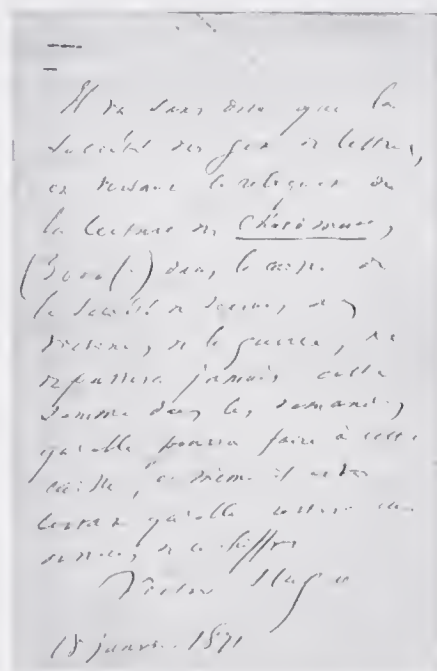 Il va sans dire que la
Société des gens de lettres,
en versant le reliquat de
la lecture des Châtiments,
(3000 f.) dans la caisse de
la société de secours des
victimes de la guerre, ne
dépassera jamais cette
somme dans les demandes
qu'elle pourra faire à cette
caisse,
qu'elle restera en
de ce chiffre
Victor Hugo
18 janv. 1871